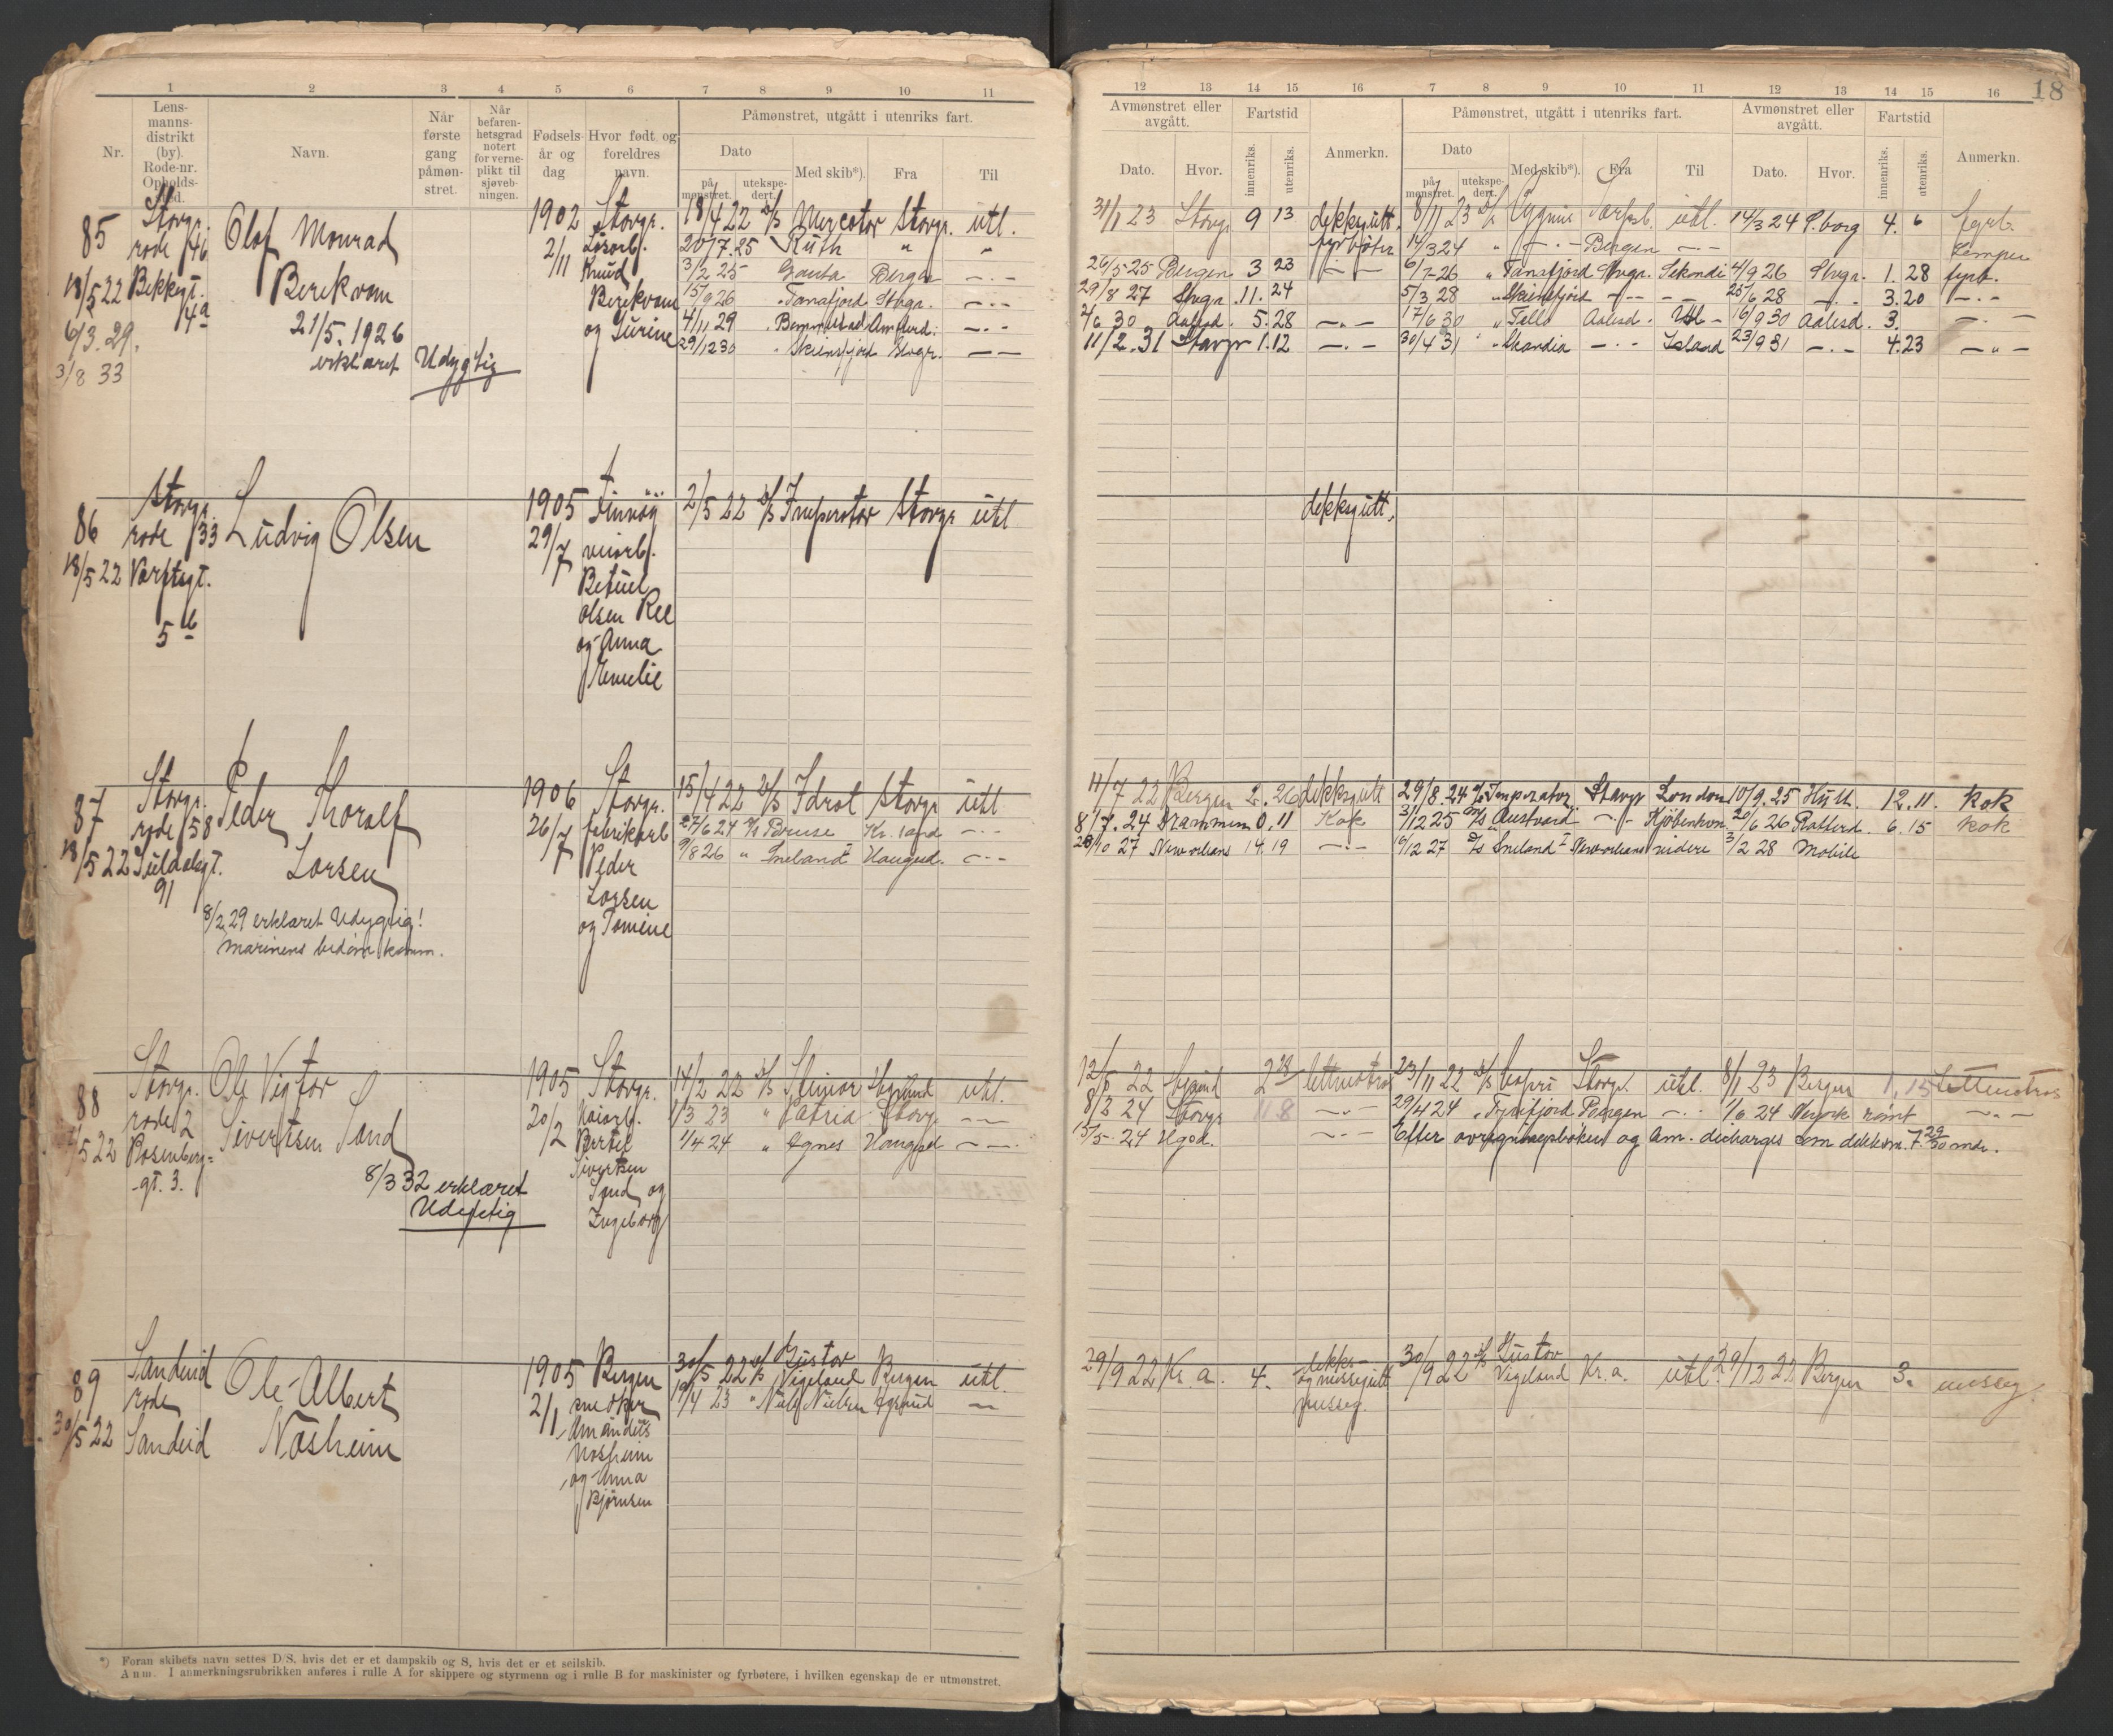 1 2 3 4 5 6 7 8 9 10 11
Nr.
Lens-
manns-
distrikt
(by).
Rode-nr.
Opholds-
sted.
Navn.
Når
første
gang
påmøn-
stret.
Når
befaren-
hetsgrad
notert
for verne-
plikt til
sjøveb-
ningen.
Fødsels-
år og
dag
Hvor født og
foreldres
navn.
Påmønstret, utgått i utenriks fart.
Dato
på
mønstret.
utekspe-
dert.
Med skib*).
Fra
Til
85
18/5 22
6/3. 29.
3/8 33
Stavgr.
rode 46
Bekkgt.
4a
Olaf Monrad
Berekvam
21/5. 1926
erklæret Udygtig
1902
2/11
Stavgr.
Løsarb.
Knud
Berekvam
og Gurine
18/4 22 D/S Mercator Stavgr. utl.
20/7.25 " Ruth " "
3/2 25 Gauta Bergen —.—
15/9 26 " Tanafjord Stvgr. —.—
4/11 29 " Bommestad Amsterd. —.—
29/12 30 " Skiensfjord Stvgr. ——
86
18/5 22
Stavgr.
rode 33
Værftsgt.
5b
Ludvig Olsen
1905
29/7
Finnöy
Betuel
Olsen
og Anna
Emelie
2/5 22 D/S Imperator Stavgr utl
87
18/5 22
Stavgr.
rode 58
91
Peder Thoralf
Larsen
8/2 29 erklæret Udygtig!
marinens bedøm. komm.
1906
26/7
Stavgr.
fabrikarb
Peder
Larsen
og Tomine
15/4 22 D/S Idræt Stavgr utl
27/6 24 D/S Bruse Kr.sand —.—
9/8 26 " Sneland I Haugsd. —.—
88
Stavgr.
rode 2
Rosenberg-
gt. 3.
Ole Vigtor
Sivertsen Sand
8/3 32 erklæret
Udygtig
1905
20/2
Stavgr.
Bertel
Sivertsen
Sand og
Ingeborg
14/2 22 D/S Steinor Egersund utl.
1/3 23 " Astrid Stavgr ——
1/4 24 " Agnes Haugsd ——.
89
30/5 22
Sandeid
rode
Sandeid
Ole Albert
Næsheim
1905
2/1
Bergen
snedker
Amandus
Næsheim
og Anna
Bjørnsen
30/5 22 D/S Gustav Vigeland Bergen utl.
19/4 23 " Niels Nielsen Egersund —
*) Foran skibets navn settes D/S, hvis det er et dampskib og S, hvis det er et seilskib.
Anm. I anmerkningsrubrikken anføres i rulle A for skippere og styrmenn og i rulle B for maskinister og fyrbøtere, i hvilken egenskap de er utmønstret.
18
12 13 14 15 16 7 8 9 10 11 12 13 14 15 16
Avmønstret eller
avgått.
Dato.
Hvor.
Fartstid
innenriks.
utenriks.
Anmerkn.
Påmønstret, utgått i utenriks fart.
Dato
på
mønstret.
utekspe-
dert.
Med skib*).
Fra
Til
Avmønstret eller
avgått.
Dato.
Hvor.
Fartstid
innenriks.
utenriks.
Anmerkn.
31/1 23 Stavgr 9 13 dekksgutt. 8/11 23 D/S Cygnus Sarpsb. utl. 14/3 24 P.borg 4. 6 fyrb.
fyrbøter 14/3 24 " —.— Bergen —.— Lemper
26/5 25 Bergen 3 23 —— 6/7-26 " Tanafjord Stvgr. Sekondi 4/9 26 Stvgr. 1. 28 fyrb.
29/8 27 Stvgr. 11. 24 5/3 28 " Skiensfjord —.— 25/6 28 —.— 3. 20 —.—
2/6 30 Aalesd. 5. 28 —.— 17/6 30 " Tello Aalesd. Utl— 16/9 30 Aalesd. 3. —.—
11/2. 31 Stavgr 1. 12 —.— 30/4 31 " Skandia —.— Island 23/9 31 —.— 4. 23 —.—
dekksgutt.
11/7 22 Bergen 2. 26 dekksgutt 29/8.24 D/S Imperator Stavgr London 10/9. 25 Hull. 12. 11. kok
8/7. 24 Drammen 0. 11 Kok 3/12 25 D/S Austvard —.— Kjøbenhavn. 20/6 26 Rotterd. 6. 15 kok
28/10 27 New orleans 14. 19 —.— 16/12 27 D/S Sneland I New orleans videre 3/2 28 Mobile
12/5 22 Egersund lettmatros 23/11 22 D/S Stavgr. utl. 8/1 23 Bergen 1. 15 Lettmatros
8/2 24 Stavgr —.— 29/4 24 " Tyrifjord Bergen —.— 1/6 24 N.york rømt —.—
15/5. 24 Hgsd. —.— Efter avregningsbøken og Am. discharges som dekksm. 7. 29/30 mdr.
29/9 22 Kr.a. 4. dekks- og messegutt 30/9 22 D/S Gustav Vigeland Kr.a. utl. 29/12 22 Bergen 3. messeg.
messeg.